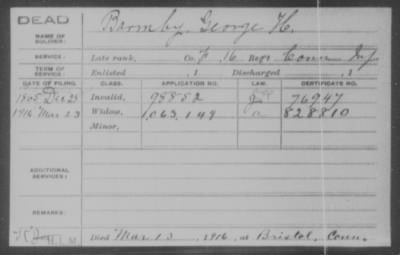 DEAD
NAME OF SOLDIER: Barmby, George H.
SERVICE: Late rank, Co. F, 16 Reg't Conn Inf
TERM OF SERVICE: Enlisted , 1 Discharged , 1
DATE OF FILING. CLASS. APPLICATION NO. LAW. CERTIFICATE NO.
1865 Dec 28 Invalid, 98852 76947
1916 Mar 23 Widow, 1,063,149 828810
Minor,
ADDITIONAL SERVICES:
REMARKS:
Died Mar 13, 1916, at Bristol, Conn.